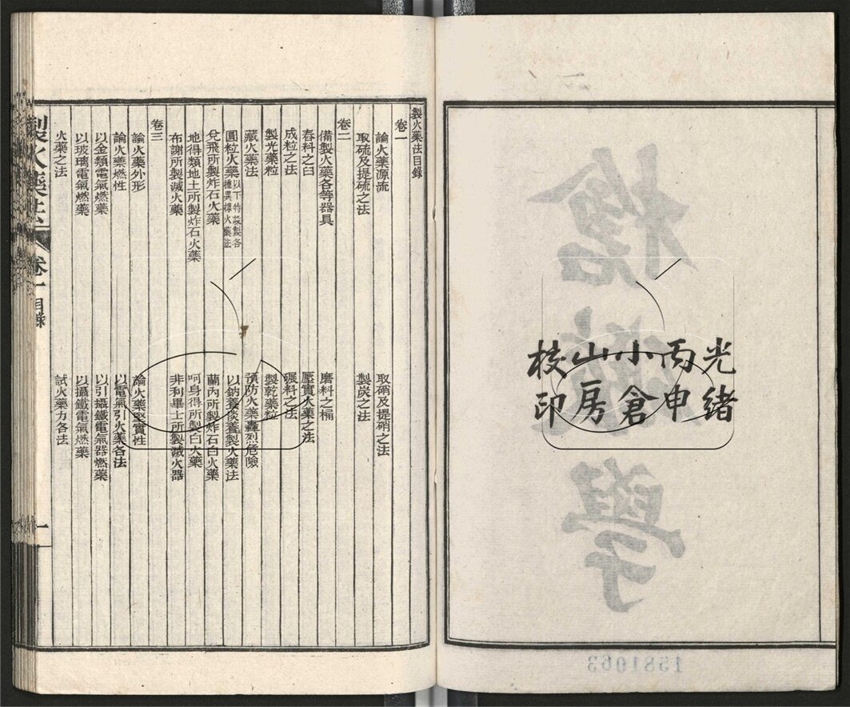 光緒
丙申
小倉
山房
校印
製火藥法目錄
卷一
論火藥源流 取硝及提硝之法
取硫及提硫之法 製炭之法
卷二
備製火藥各等器具 磨料之桶
舂料之臼 壓實火藥之法
成粒之法 碾料之法
製光藥粒 製乾藥粒
藏火藥法 預防火藥轟烈危險
圓粒火藥 以下特設製各種異樣火藥法 以鈉養淡養製火藥法
兌飛所製炸石火藥 蘭內所製炸石白火藥
地得類地土所製炸石火藥 呵身得所製白火藥
布謝所製滅火藥 非利畢士所製滅火器
卷三
論火藥外形 論火藥聚實性
論火藥燃性 以電氣引火藥各法
以金類電氣燃藥 以引攝鐵電氣器燃藥
以玻璃電氣燃藥 以攝鐵電氣燃藥
火藥之法 試火藥力各法
製火藥法 卷一目錄 一